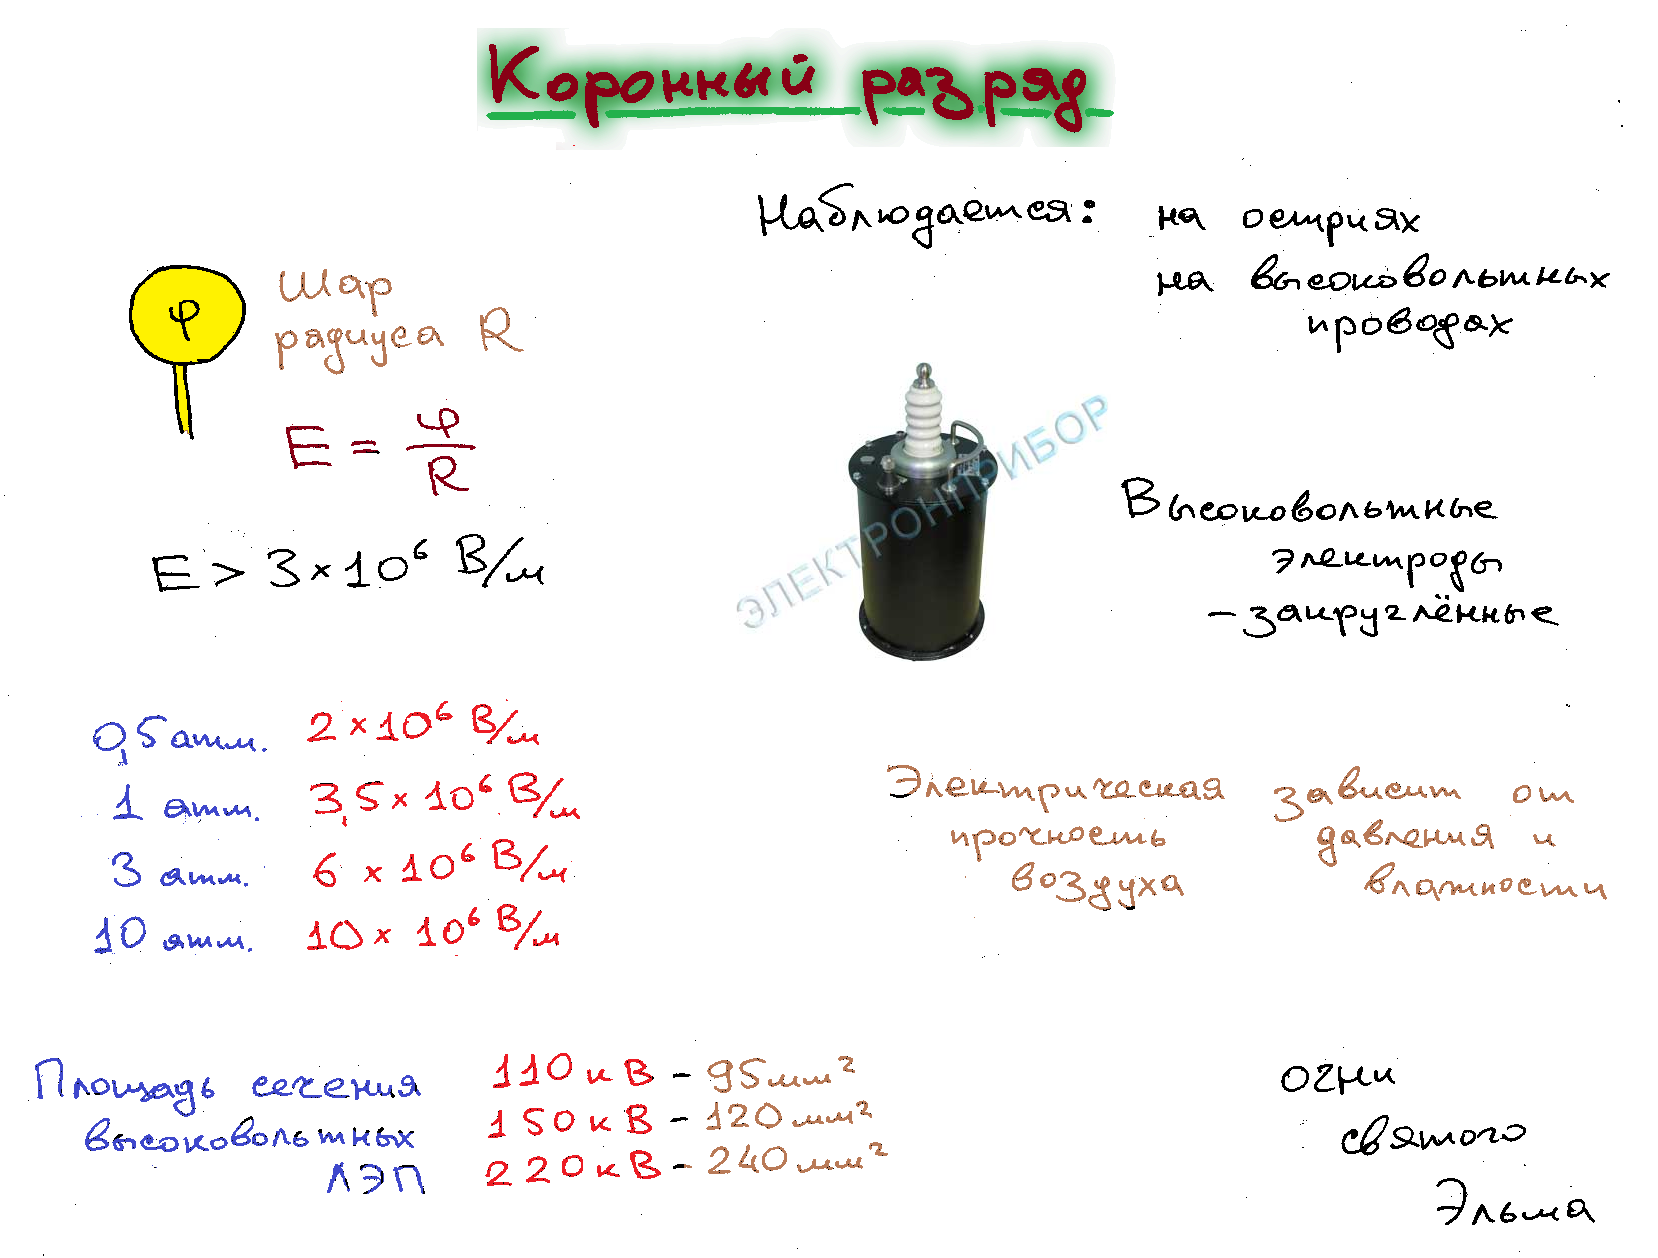 Коронный разряд
Наблюдается: на остриях
на высоковольтных
проводах
φ
Шар
радиуса R
E = φ/R
E > 3×10⁶ В/м
ЭЛЕКТРОНПРИБОР
Высоковольтные
электроды
– закруглённые
0,5 атм. 2×10⁶ В/м
1 атм. 3,5×10⁶ В/м
3 атм. 6 × 10⁶ В/м
10 атм. 10 × 10⁶ В/м
Электрическая зависит от
прочность давления и
воздуха влажности
Площадь сечения
высоковольтных
ЛЭП
110 кВ – 95 мм²
150 кВ – 120 мм²
220 кВ – 240 мм²
огни
святого
Эльма